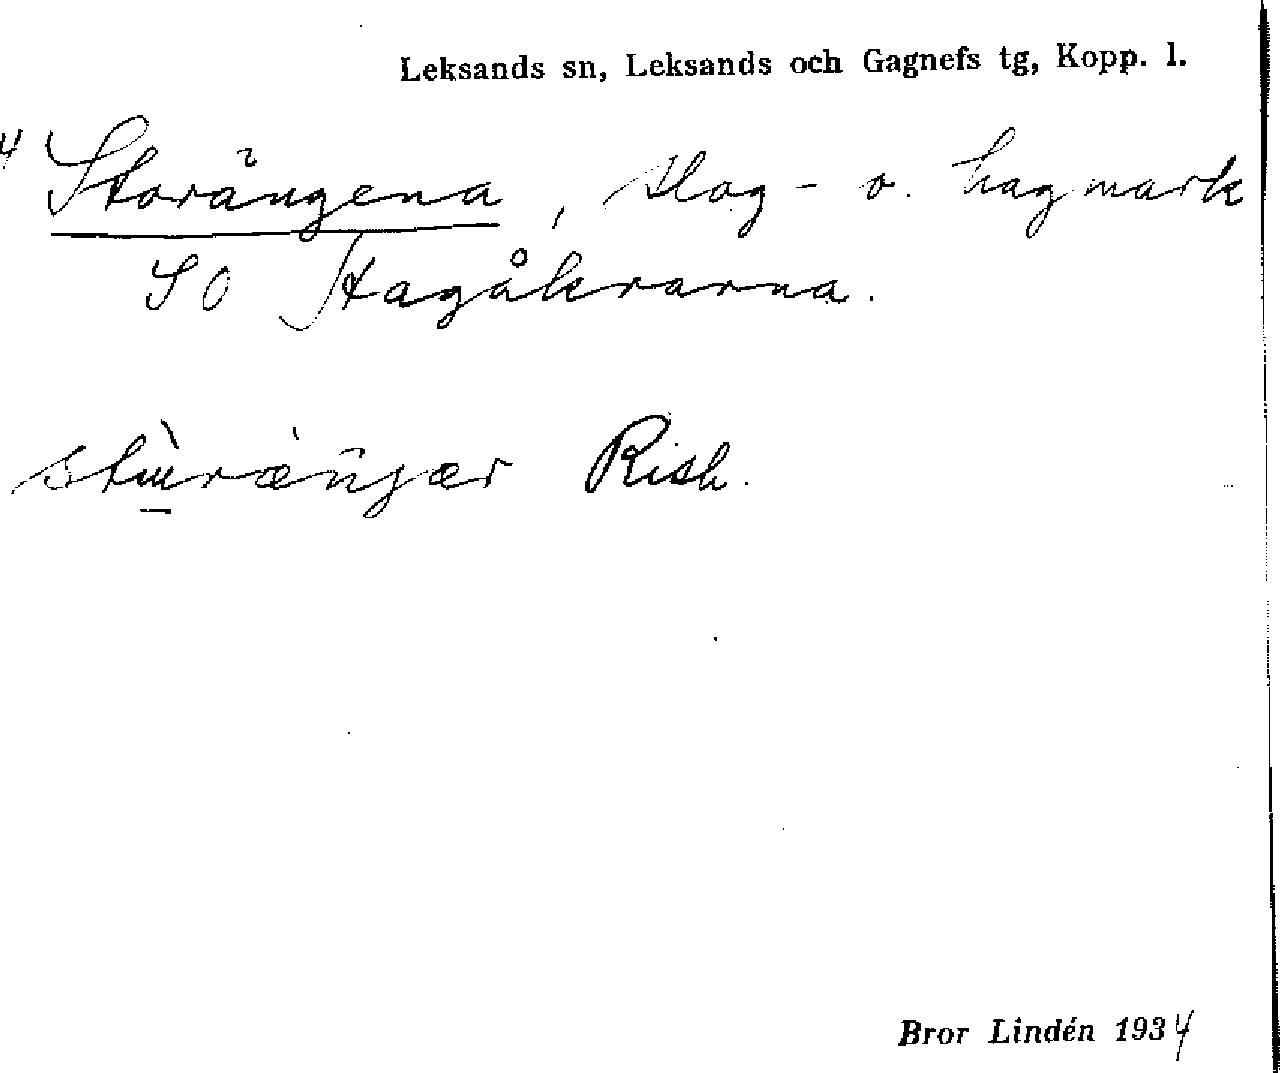 Leksands sn, Leksands och Gagnefs tg, Kopp. l.
4 Storängena, skog- o. hagmark
SO Hagåkrarna.
Rish.
Bror Lindén 1934